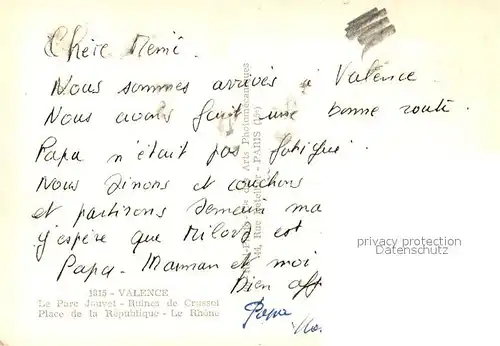 Chère Mémé.
Nous sommes arrivés à Valence
Nous avons fait une bonne route.
Papa n'était pas fatigué.
Nous dinons et couchons
et partirons demain ma
j'espère que Milord est
Papa - Maman et moi
Bien aff
Papa
1315 - VALENCE
Le Parc Jouvet - Ruines de Crussol
Place de la République - Le Rhône
Arts Photomécaniques
44, Rue Letellier - PARIS (XVe)
privacy protection
DELCAMPE.NET